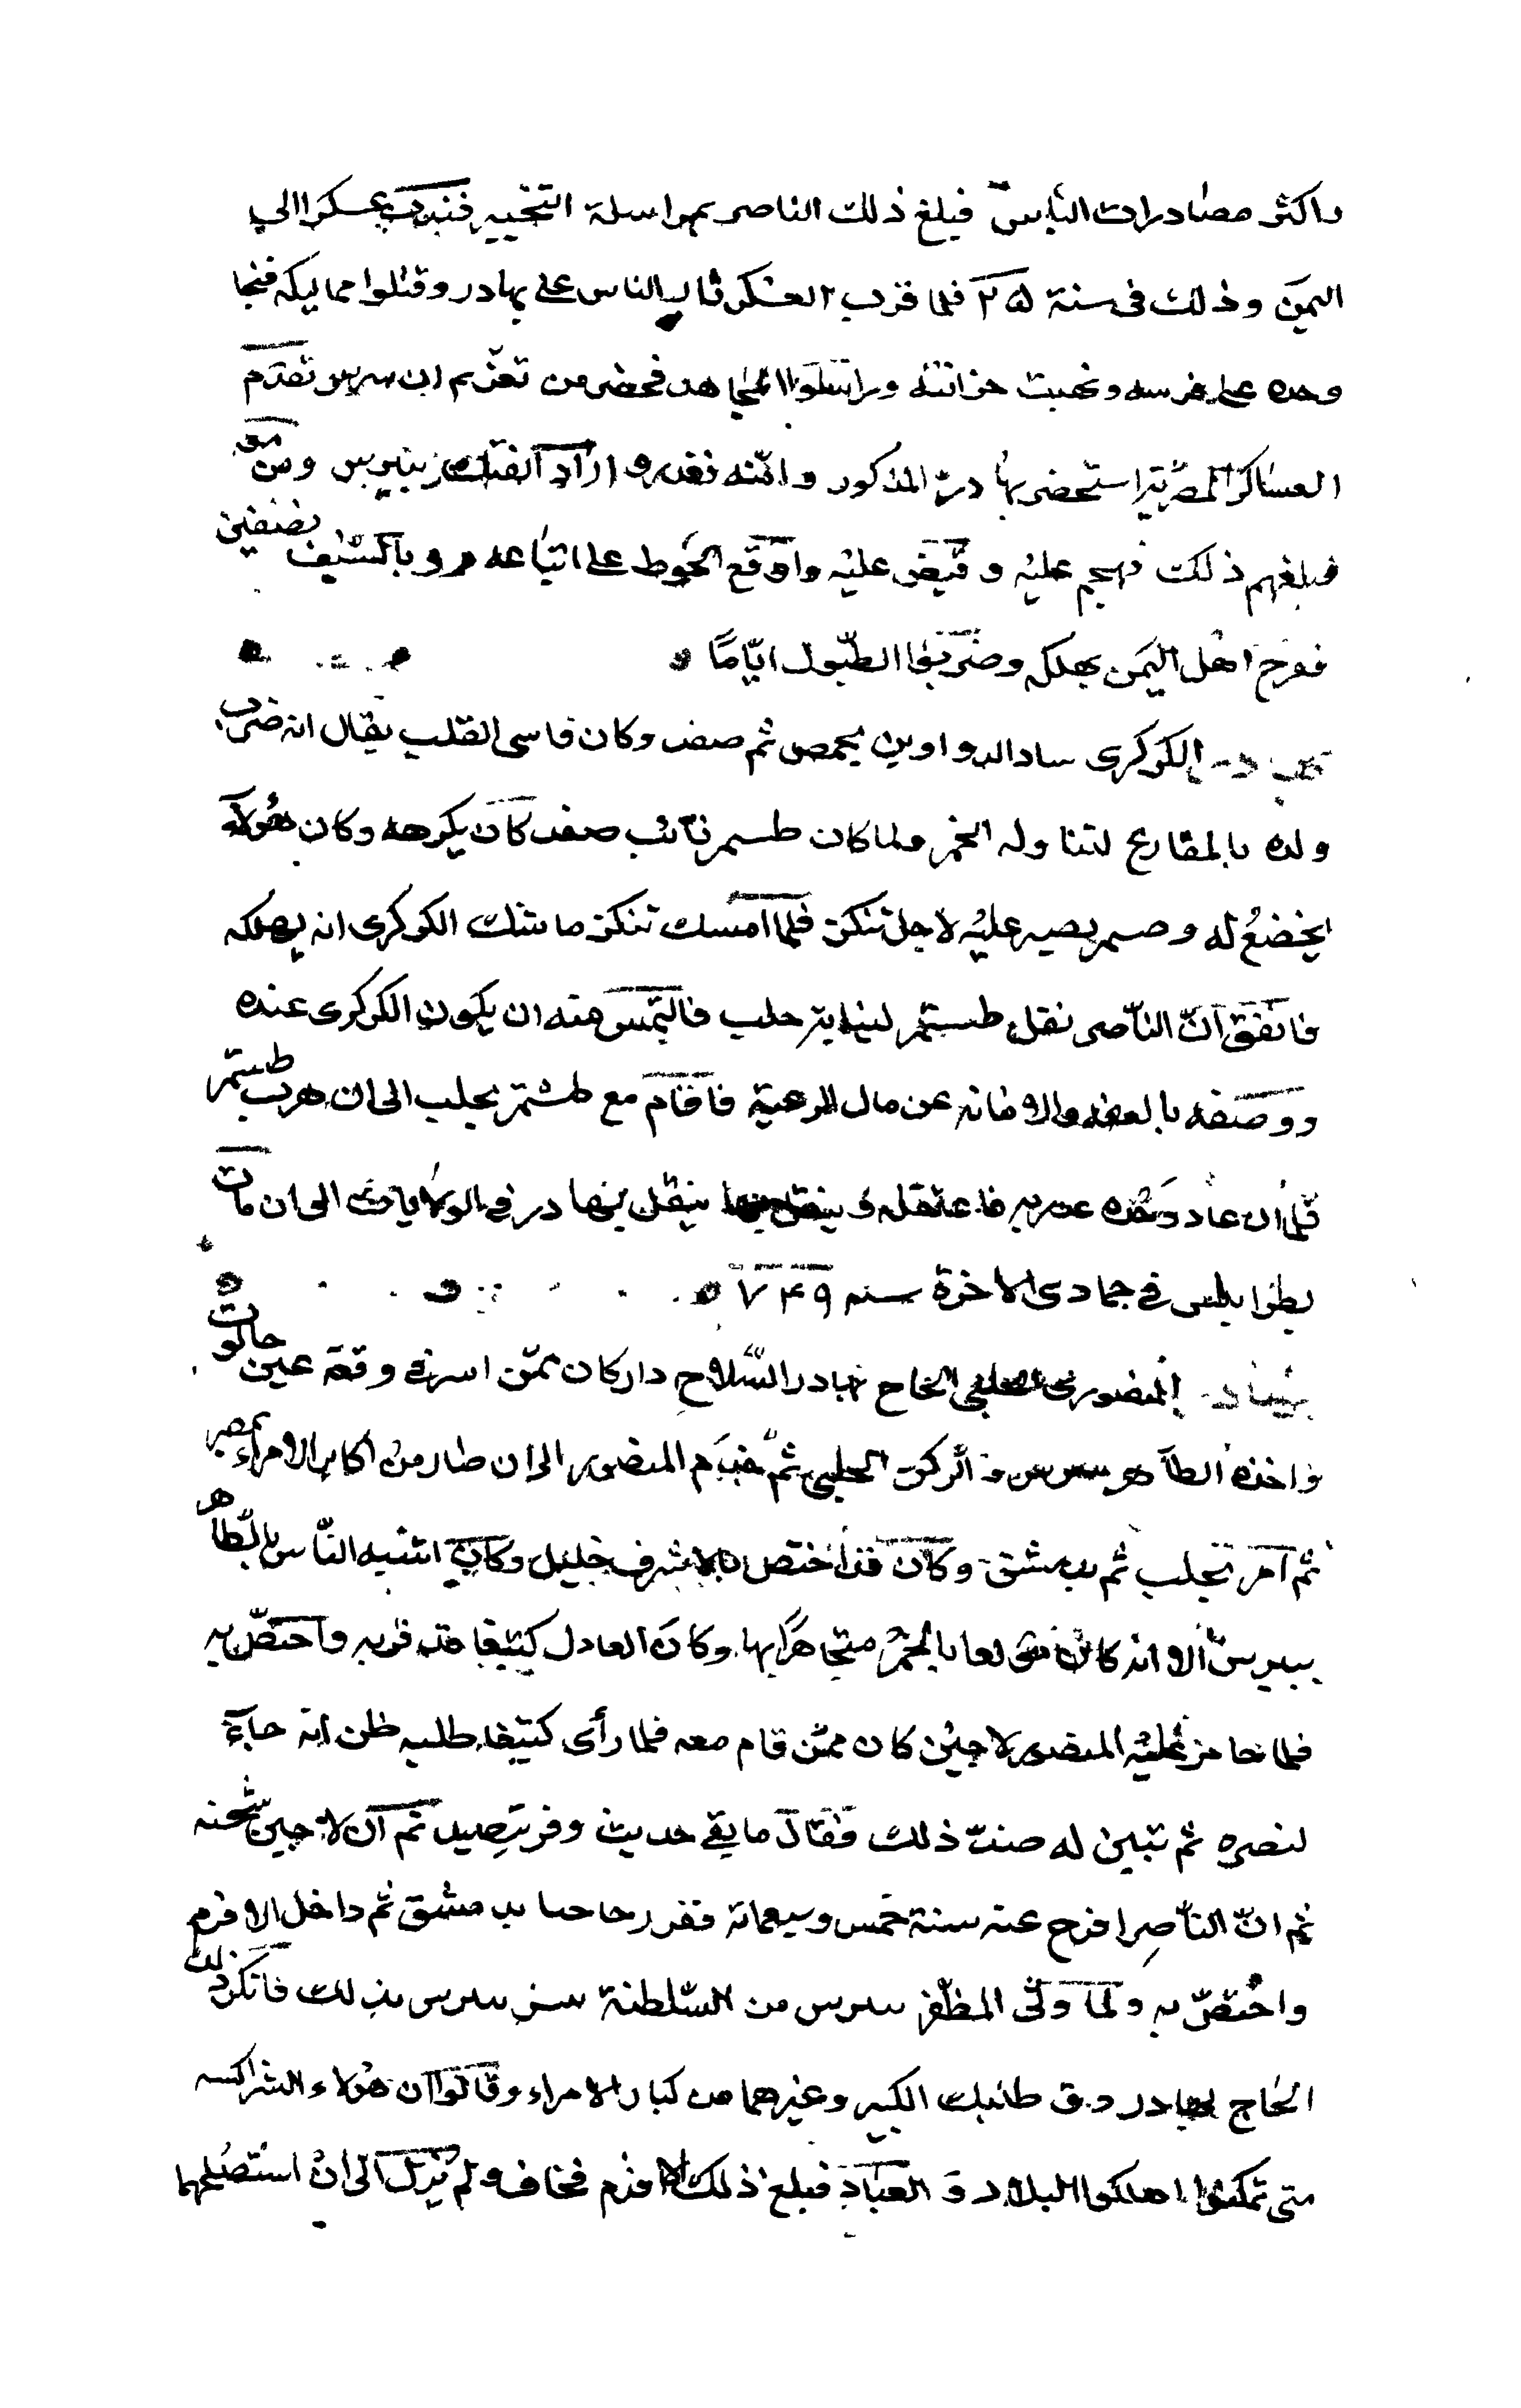 واكثر مصادرات الناس فبلغ ذلك الناصر بمراسلة التخبير فندب عسكرا الى
اليمن وذلك فى سنة ٢٥ فلما قرب العسكر ثاب الناس على بهادر وقتلوا مماليكه فنجا
وحده على فرسه ونهبت خزانته وراسلوا المجاهد فحضر من تعز ثم ان بيبرس تقدم
العساكر المصرية استحضر بهادر المذكور وامّنه فغدر واراد الفتك ببيبرس ومن معه
فبلغهم ذلك فهجم عليه وقبض عليه واوقع الحوط على اتباعه ووسط بالسيف نصفين
ففرح اهل اليمن بهلكه وضربوا الطبول ايّامًا
بهادر الكركرى شاد الدواوين بحمص ثم صفد وكان قاسى القلب يقال انه ضرب
ولده بالمقارع لتناوله الخمر ولما كان طشتمر نائب صفد كان يكرهه وكان هو لا
يخضع له وصبر يصبر عليه لاجل تنكز فلما امسك تنكز ما شك الكركرى انه يهلكه
فاتفق انّ الناصر نقل طشتمر لنيابة حلب فالتمس منه ان يكون الكركرى عنده
ووصفه بالعفة والامانة عن مال الرعية فاقام مع طشتمر بحلب الى ان هرب طشتمر
فلما ان عاد وجده فاعتقله ينقل بهادر فى الولايات الى ان مات
بطرابلس فى جمادى الاخرة سنه ٧٤٩
بهادر المنصورى الحلبى الحاج بهادر السّلاح دار كان ممّن اسر فى وقعة عين جالوت
واخذه الظاهر بيبرس من الحلبى ثم خدم المنصور الى ان صار من اكابر الامراء بمصر
ثم امر بحلب ثم بدمشق وكان قد اختص بالاشرف خليل وكان اشبه النّاس بالظاهر
بيبرس الا انه كان مولعا بالخمر متجاهرا بها وكان العادل كتبغا قد قربه واختصّ به
فلما خامر عليه المنصور لاجين كان ممّن قام معه فلما رأى كتبغا طلبه ظن انه جاء
لنصره ثم تبين له ضد ذلك فقال ما بقى حديث وفر ثم ان لاجين سجنه
ثم انّ الناصر افرج عنه سنة خمس وسبعمائة فقرر حاجبا بدمشق ثم داخل الافرم
واختصّ به ولما ولّى المظفر بيبرس من السّلطنة بيبرس بذلك فانكر ذلك
الحاج بهادر وقطلبك الكبير وغيرهما من كبار الامراء وقالوا ان هؤلاء الشراكسه
متى تمكنوا اهلكوا البلاد والعباد فبلغ ذلك الافرم فخاف ولم يزل الى ان استصلحهما